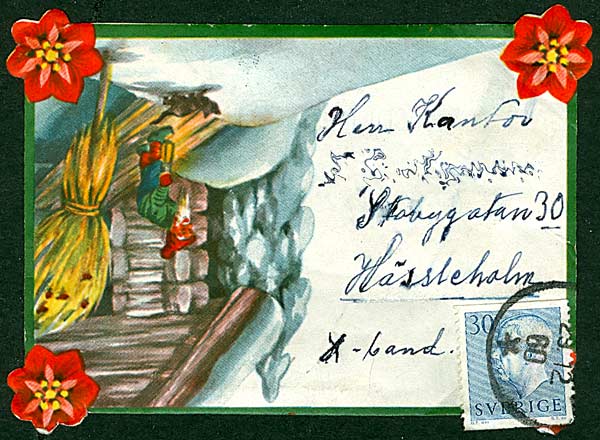 Herr Kantor
Stobygatan 30
Hässleholm
X-band.
30
SVERIGE